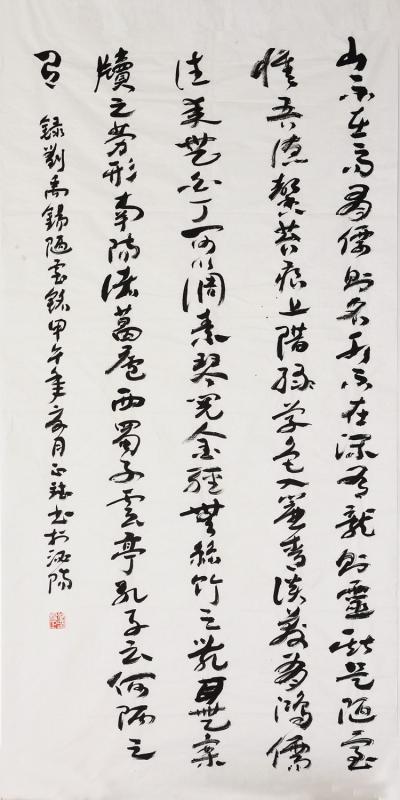 山不在高有僊則名水不在深有龍則靈斯是陋室
惟吾德馨苔痕上階綠草色入簾青談笑有鴻儒
往來無白丁可以調素琴閱金經無絲竹之亂耳無案
牘之勞形南陽諸葛廬西蜀子雲亭孔子云何陋之
有 錄劉禹錫陋室銘甲午年夏月正書於泌陽